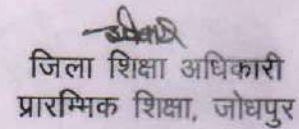 जिला शिक्षा अधिकारी
प्रारम्भिक शिक्षा, जोधपुर